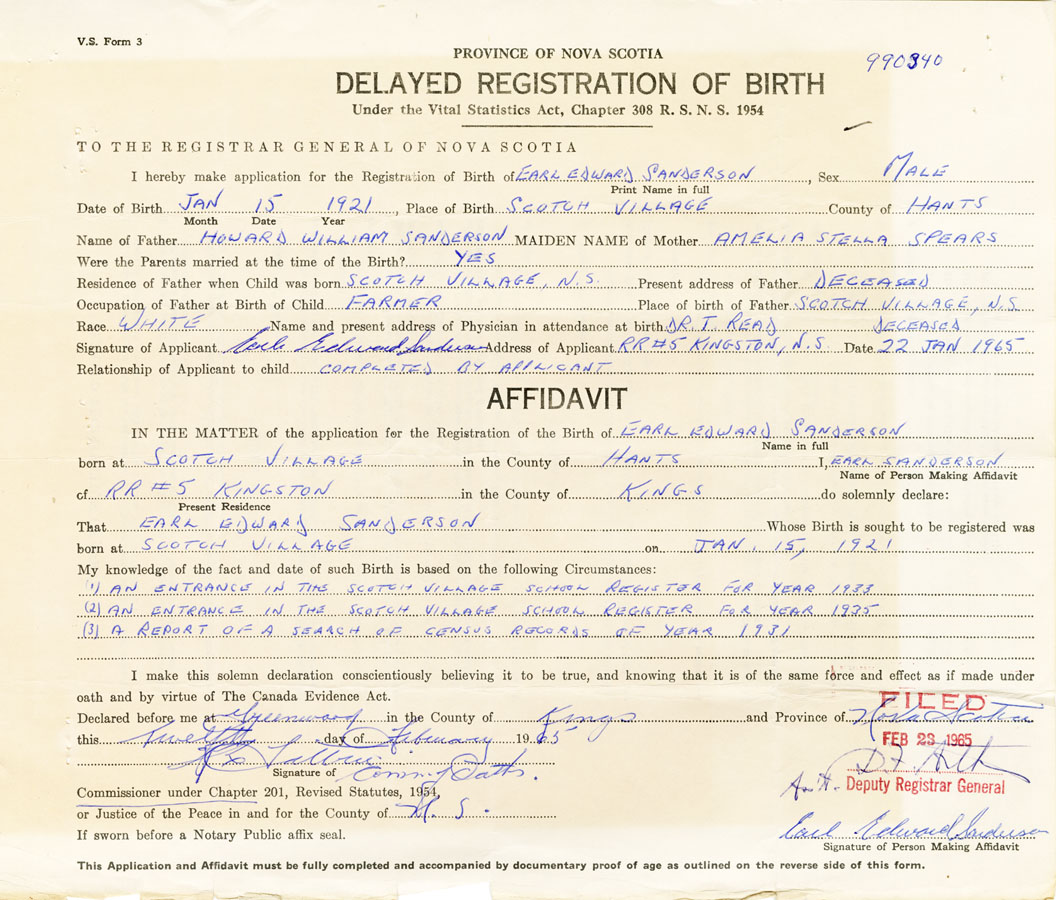 V.S. Form 3
990340
PROVINCE OF NOVA SCOTIA
DELAYED REGISTRATION OF BIRTH
Under the Vital Statistics Act, Chapter 308 R. S. N. S. 1954
TO THE REGISTRAR GENERAL OF NOVA SCOTIA
I hereby make application for the Registration of Birth of EARL EDWARD SANDERSON, Sex MALE
Print Name in full
Date of Birth JAN 15 1921, Place of Birth SCOTCH VILLAGE County of HANTS
Month Date Year
Name of Father HOWARD WILLIAM SANDERSON MAIDEN NAME of Mother AMELIA STELLA SPEARS
Were the Parents married at the time of the Birth? YES
Residence of Father when Child was born SCOTCH VILLAGE, N.S. Present address of Father DECEASED
Occupation of Father at Birth of Child FARMER Place of birth of Father SCOTCH VILLAGE, N.S
Race WHITE Name and present address of Physician in attendance at birth DR. T. READ DECEASED
Signature of Applicant Earle Edward Sanderson Address of Applicant RR #5 KINGSTON, N.S. Date 22 JAN 1965
Relationship of Applicant to child COMPLETED BY APPLICANT
AFFIDAVIT
IN THE MATTER of the application for the Registration of the Birth of EARL EDWARD SANDERSON
Name in full
born at SCOTCH VILLAGE in the County of HANTS I, EARL SANDERSON
Name of Person Making Affidavit
of RR #5 KINGSTON in the County of KINGS do solemnly declare:
Present Residence
That EARL EDWARD SANDERSON Whose Birth is sought to be registered was
born at SCOTCH VILLAGE on JAN. 15, 1921
My knowledge of the fact and date of such Birth is based on the following Circumstances:
(1) AN ENTRANCE IN THE SCOTCH VILLAGE SCHOOL REGISTER FOR YEAR 1933
(2) AN ENTRANCE IN THE SCOTCH VILLAGE SCHOOL REGISTER FOR YEAR 1935
(3) A REPORT OF A SEARCH OF CENSUS RECORDS OF YEAR 1931
I make this solemn declaration conscientiously believing it to be true, and knowing that it is of the same force and effect as if made under
oath and by virtue of The Canada Evidence Act.
FILED
Declared before me at Greenwood in the County of Kings and Province of Nova Scotia
this twelfth day of February 1965
FEB 23 1965
Signature of Comm of Oaths.
Deputy Registrar General
Commissioner under Chapter 201, Revised Statutes, 1954,
or Justice of the Peace in and for the County of N. S.
If sworn before a Notary Public affix seal.
Earl Edward Sanderson
Signature of Person Making Affidavit
This Application and Affidavit must be fully completed and accompanied by documentary proof of age as outlined on the reverse side of this form.